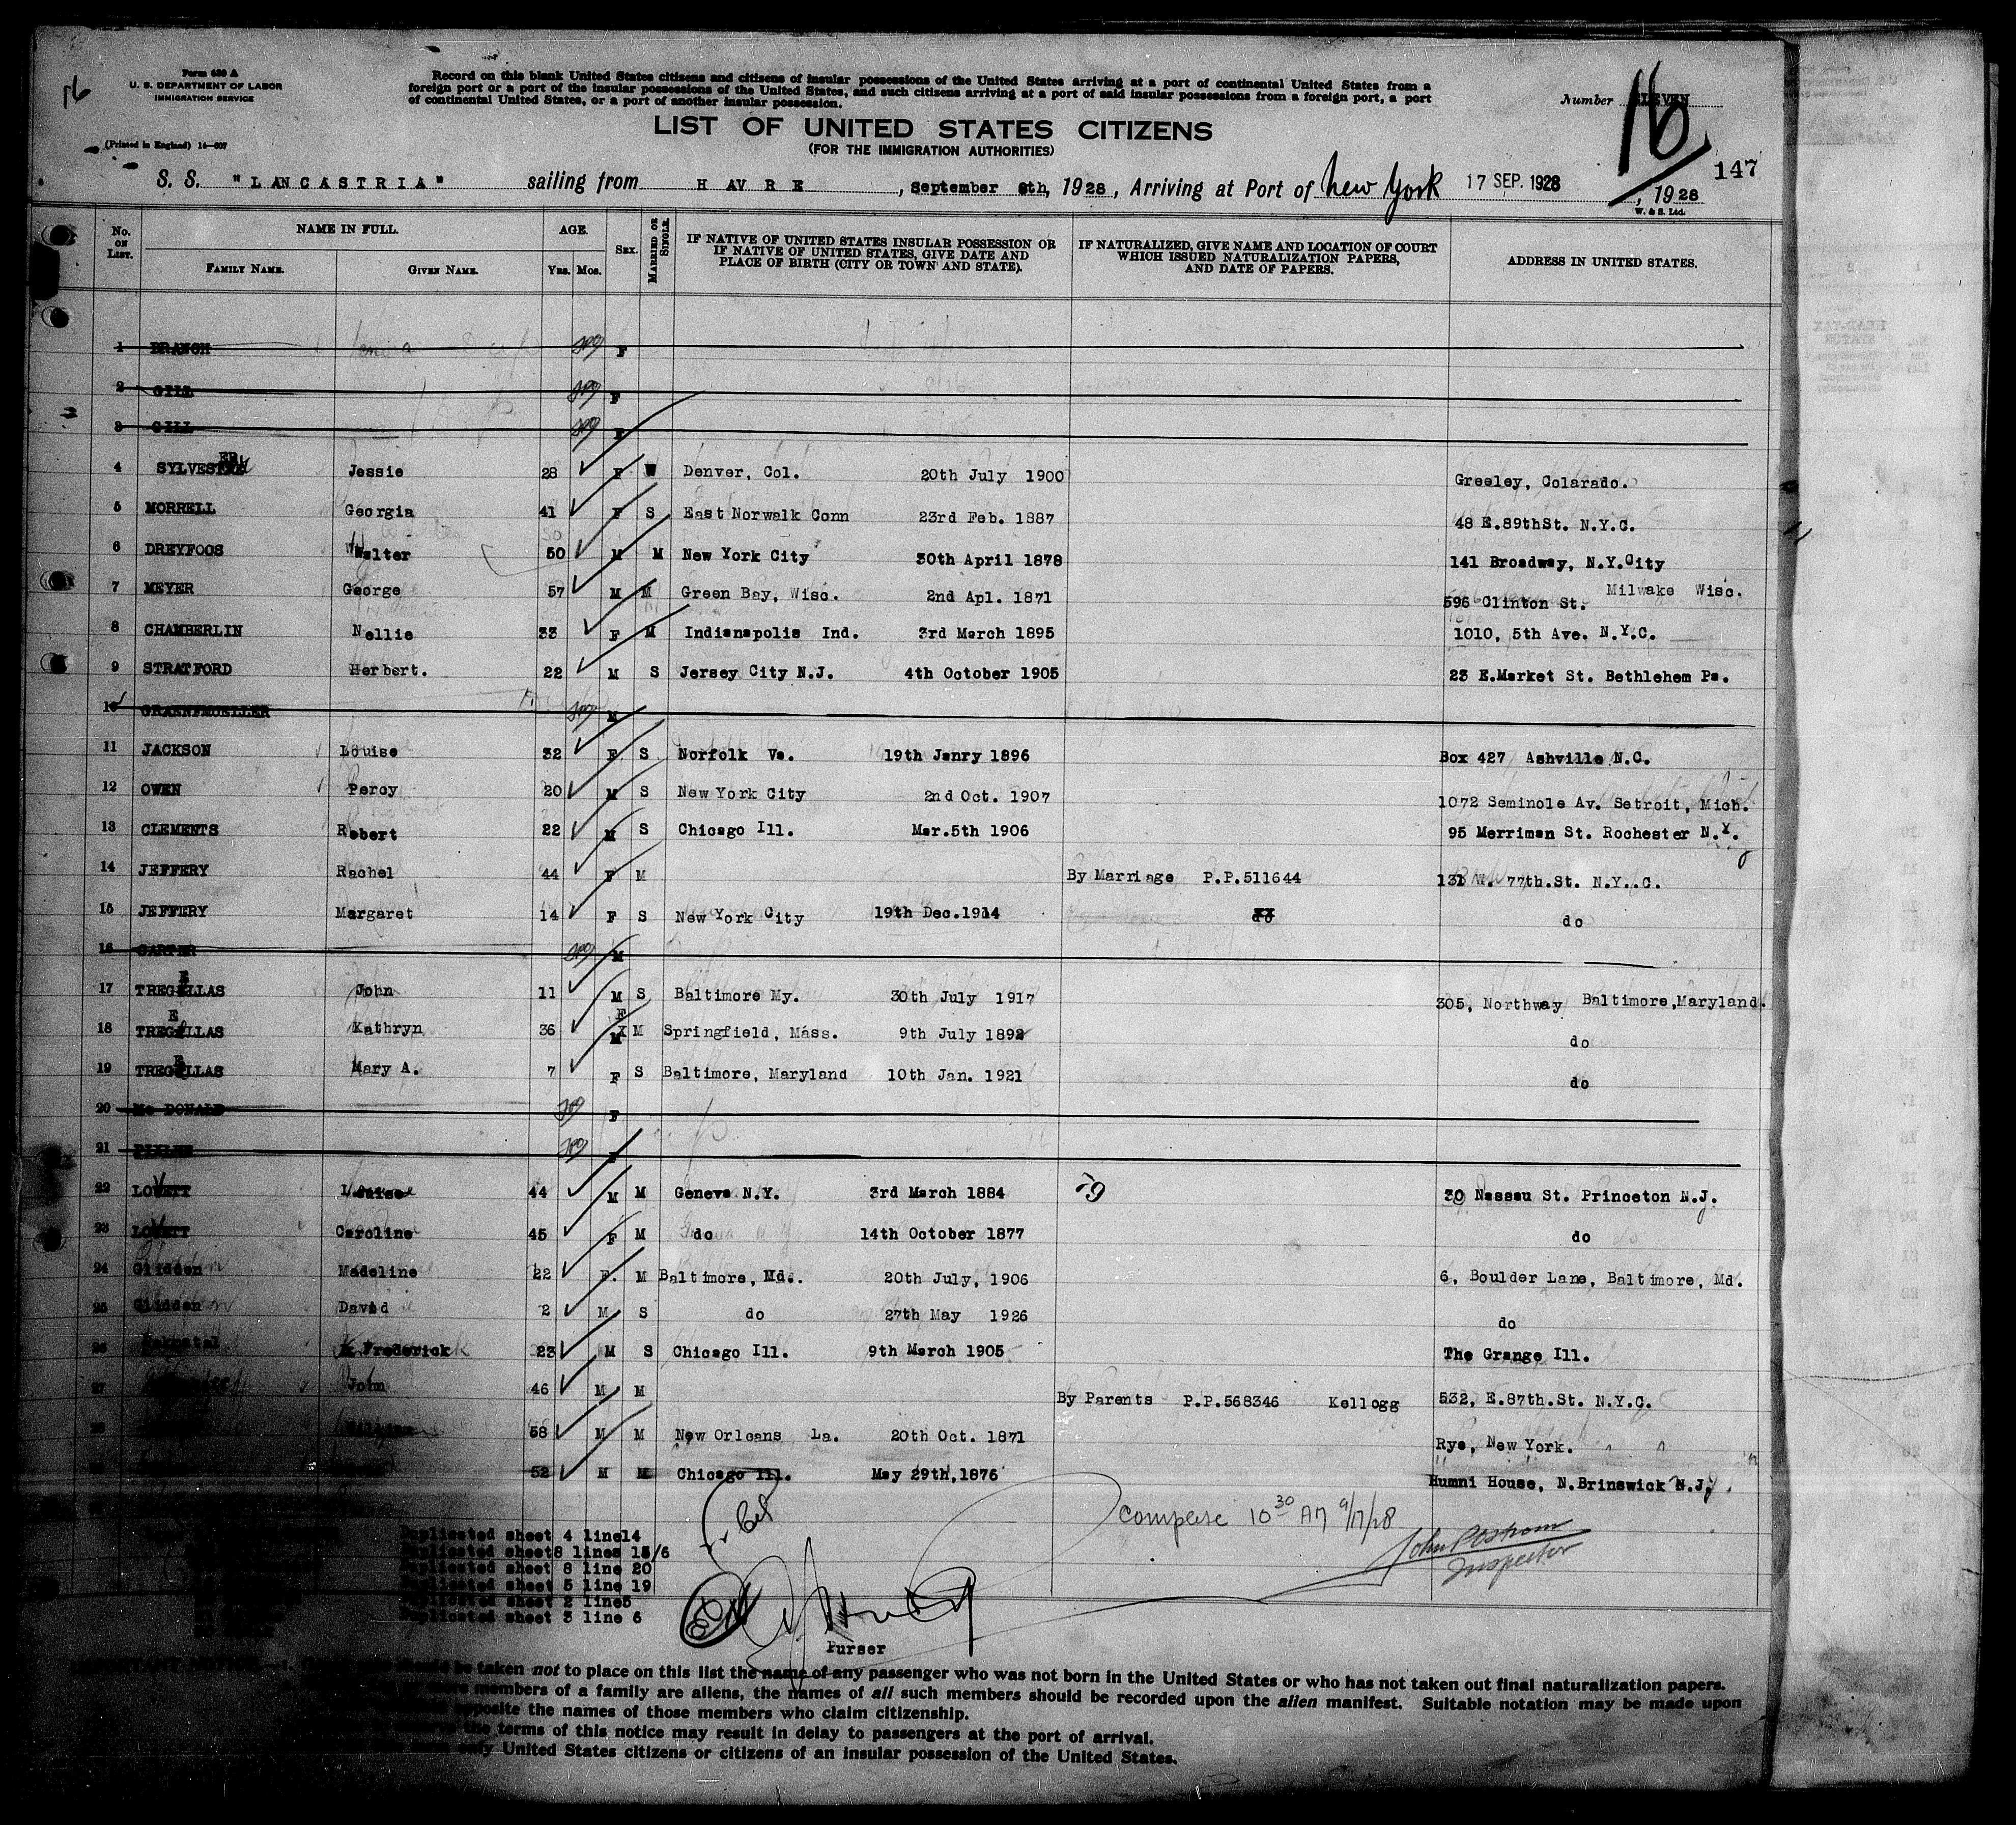 16
Form 630 A
U. S. DEPARTMENT OF LABOR
IMMIGRATION SERVICE
(Printed in England) 14—607
Record on this blank United States citizens and citizens of insular possessions of the United States arriving at a port of continental United States from a
foreign port or a port of the insular possessions of the United States, and such citizens arriving at a port of said insular possessions from a foreign port, a port
of continental United States, or a port of another insular possession.
Number ELEVEN
16
147
LIST OF UNITED STATES CITIZENS
(FOR THE IMMIGRATION AUTHORITIES)
S. S. "LANCASTRIA" sailing from HAVRE, September 8th, 1928, Arriving at Port of New York 17 SEP. 1928, 1928
W. & S. Ltd.
No. ON LIST. NAME IN FULL. FAMILY NAME. GIVEN NAME. AGE. YRS. MOS. SEX. MARRIED OR SINGLE. IF NATIVE OF UNITED STATES INSULAR POSSESSION OR IF NATIVE OF UNITED STATES, GIVE DATE AND PLACE OF BIRTH (CITY OR TOWN AND STATE). IF NATURALIZED, GIVE NAME AND LOCATION OF COURT WHICH ISSUED NATURALIZATION PAPERS, AND DATE OF PAPERS. ADDRESS IN UNITED STATES.
1 BRANCH F
2 GILL F
3 GILL F
4 SYLVESTER Jessie 28 F W Denver, Col. 20th July 1900 Greeley, Colarado.
5 MORRELL Georgia 41 F S East Norwalk Conn 23rd Feb. 1887 48 E.89thSt. N.Y.C.
6 DREYFOOS Walter 50 M M New York City 30th April 1878 141 Broadway, N.Y.City
7 MEYER George 57 M M Green Bay, Wisc. 2nd Apl. 1871 596 Clinton St. Milwake Wisc.
8 CHAMBERLIN Nellie 33 F M Indianapolis Ind. 3rd March 1895 1010, 5th Ave. N.Y.C.
9 STRATFORD Herbert. 22 M S Jersey City N.J. 4th October 1905 23 E.Market St. Bethlehem Pa.
10 M
11 JACKSON Louise 32 F S Norfolk Va. 19th Janry 1896 Box 427 Ashville N.C.
12 OWEN Percy 20 M S New York City 2nd Oct. 1907 1072 Seminole Av. Setroit, Mich.
13 CLEMENTS Robert 22 M S Chicago Ill. Mar.5th 1906 95 Merriman St. Rochester N.Y.
14 JEFFERY Rachel 44 F M By Marriage P.P.511644 131 W. 77th.St. N.Y..C.
15 JEFFERY Margaret 14 F S New York City 19th Dec.1914 do do
16 CARTER M
17 TREGELLAS John 11 M S Baltimore My. 30th July 1917 305, Northway Baltimore,Maryland.
18 TREGELLAS Kathryn 36 F M Springfield, Mass. 9th July 1892 do
19 TREGELLAS Mary A. 7 F S Baltimore, Maryland 10th Jan. 1921 do
20 Mc DONALD F
21 F
22 LOVETT 44 M M Geneva N.Y. 3rd March 1884 30 Nassau St. Princeton N.J.
23 LOVETT Caroline 45 F M do 14th October 1877 do
24 Glidden Madeline 22 F. M Baltimore, Md.. 20th July, 1906 6, Boulder Lane, Baltimore, Md.
25 Glidden David 2 M S do 27th May 1926 do
26 Frederick 23 M S Chicago Ill. 9th March 1905 The Grange Ill.
27 John 46 M M By Parents P.P.568346 Kellogg 532, E.87th.St. N.Y.C.
William 58 M M New Orleans La. 20th Oct. 1871 Rye, New York.
52 M M Chicago Ill. May 29th,1876 Humni House, N.Brinswick N.J.
Duplicated sheet 4 line14
Duplicated sheet8 lines 15/6
Duplicated sheet 8 line 20
Duplicated sheet 5 line 19
Duplicated sheet 2 line5
Duplicated sheet 3 line 6
complete 10 30 AM 9/17/28
Inspector
Purser
be taken not to place on this list the name of any passenger who was not born in the United States or who has not taken out final naturalization papers.
members of a family are aliens, the names of all such members should be recorded upon the alien manifest. Suitable notation may be made upon
opposite the names of those members who claim citizenship.
the terms of this notice may result in delay to passengers at the port of arrival.
only United States citizens or citizens of an insular possession of the United States.